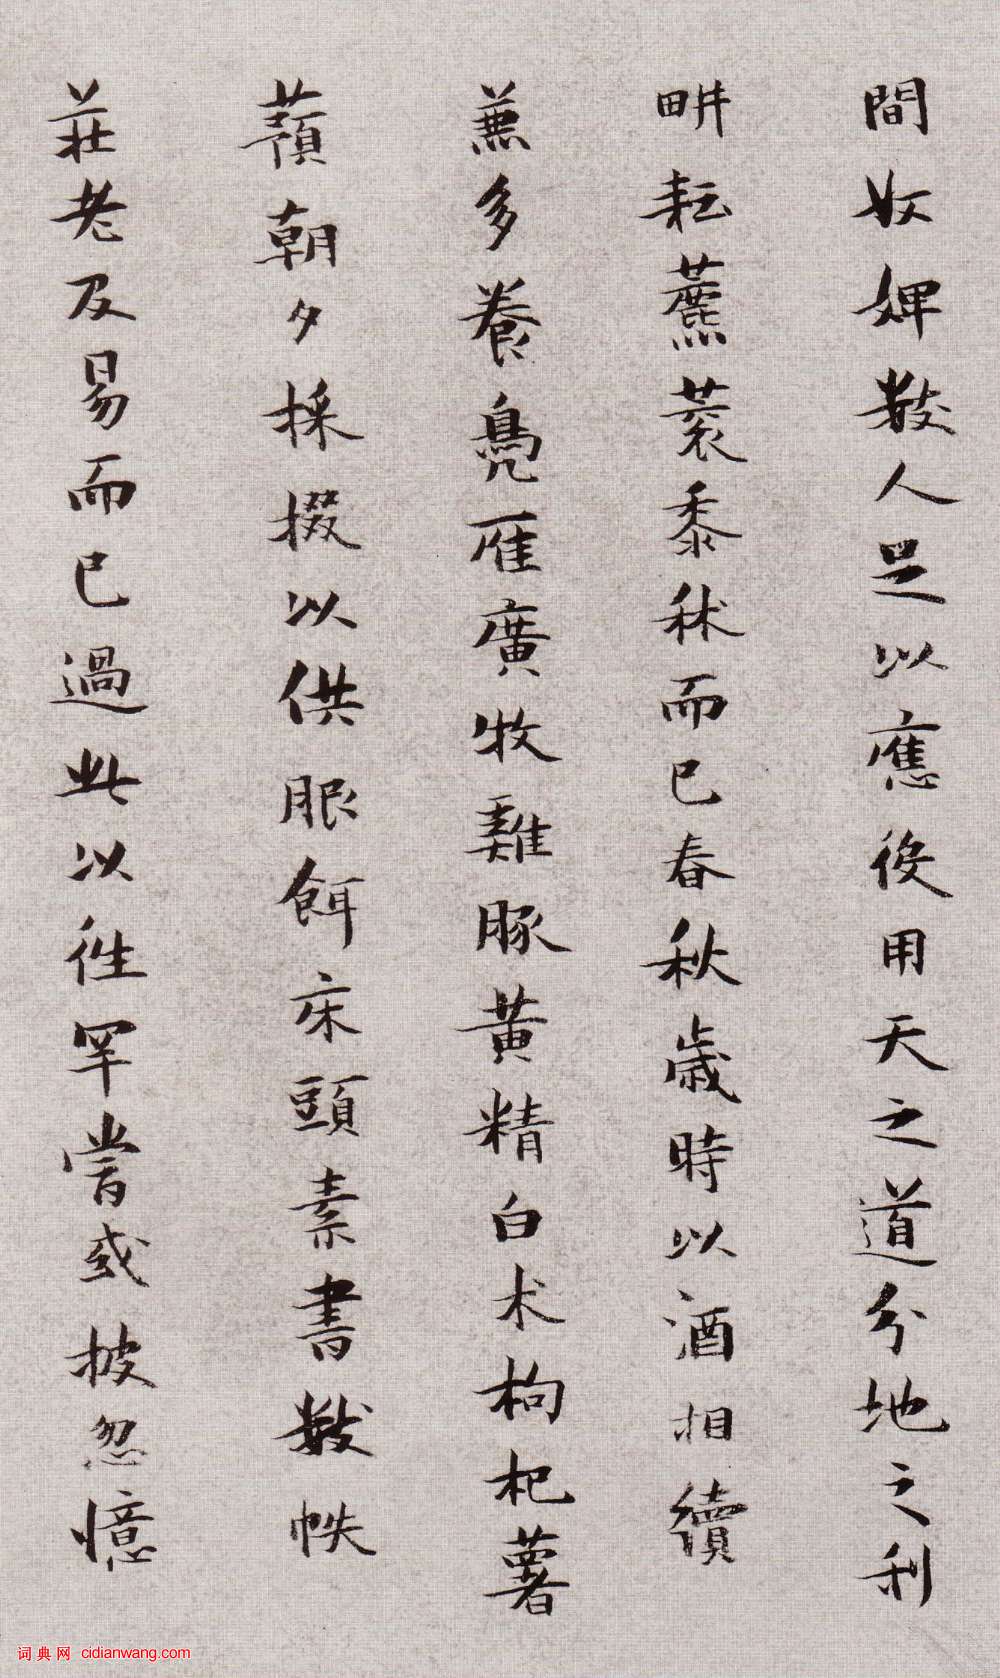 間奴婢數人足以應役用天之道分地之利
畊耘藨蓘黍秫而已春秋歲時以酒相續
兼多養鳧雁廣牧雞豚黃精白术枸杞薯
蕷朝夕採掇以供服餌床頭素書數帙
莊老及易而已過此以往罕嘗或披忽憶
词典网 cidianwang.com